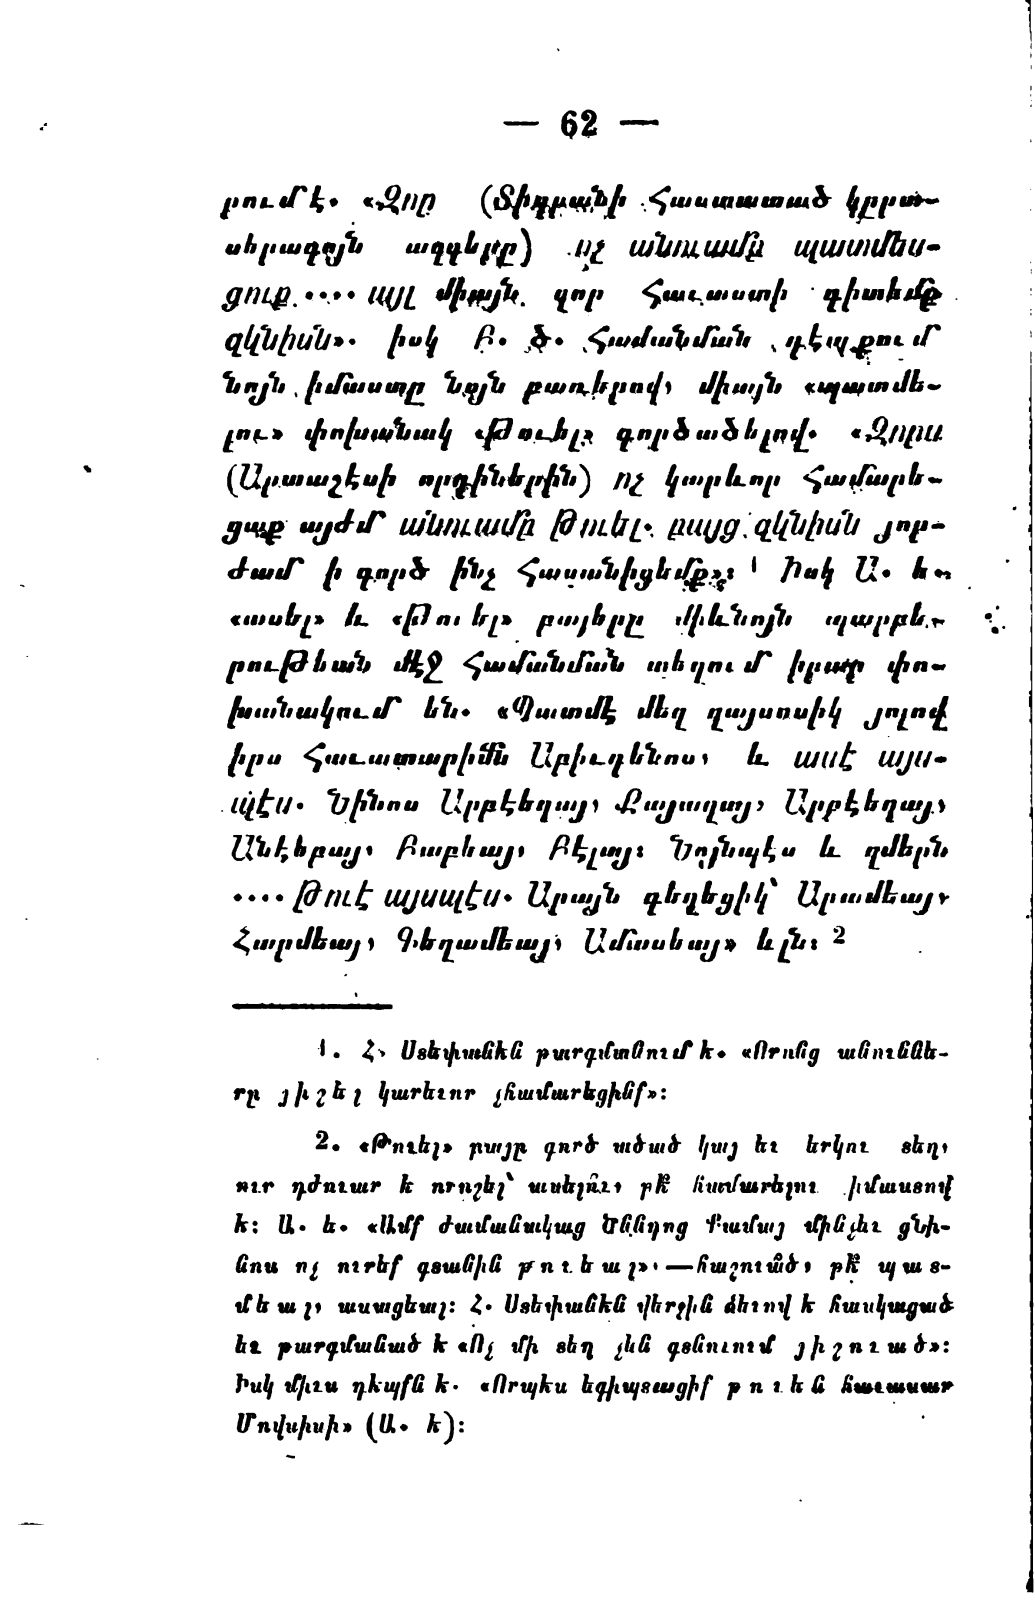 — 62 —
րում է. «Զոր (Տիգրանի հաստատած կըրտ-
սերագոյն ազգերը) ոչ անուամբ պատմես-
ցուք.... այլ միայն զոր հաւաստի գիտեմք
զկնիսն». իսկ Բ. ծ. համանման դէպքում
նոյն իմաստը նոյն բառերով, միայն «պատմե-
լու» փոխանակ «Թուել» գործածելով. «Զորս
(Արտաշէսի որդիներին) ոչ կարևոր համարե-
ցաք այժմ անուամբ թուել. բայց զկնիսն յոր-
ժամ ի գործ ինչ հասանիցեմք»։ 1 Իսկ Ա. ե.
«ասել» և «Թուել» բայերը միևնոյն պարբե-
րութեան մէջ համանման տեղում իրար փո-
խանակում են. «Պատմէ մեզ զայսոսիկ յոլով
իրս հաւատարիմն Աբիւդենոս, և ասէ այս-
պէս. Նինոս Արբէեղայ, Քայաղայ, Արբէեղայ,
Անէբայ, Բաբեայ, Բէլայ։ Նոյնպէս և զմերն
.... թուէ այսպէս. Արայն գեղեցիկ՝ Արամեայ,
Հարմեայ, Գեղամեայ, Ամասեայ» ևլն։ 2
1. Հ. Ստեփանէն թարգմանում է. «Որոնց անուննե-
րը յիշել կարեւոր չհամարեցինք»։
2. «Թուել» բայը գործ ածած կայ եւ երկու տեղ,
ուր դժուար է որոշել՝ ասելո՞ւ, թէ՞ համարելու իմաստով
է։ Ա. ե. «Ամք ժամանակաց ծննդոց Քամայ մինչեւ ցՆի-
նոս ոչ ուրեք գտանին թուեալ».—հաշուա՞ծ, թէ՞ պատ-
մեալ, ասացեալ։ Հ. Ստեփանէն վերջին ձեւով է հասկացած
եւ թարգմանած է «Ոչ մի տեղ չեն գտնուում յիշուած»։
Իսկ միւս դէպքն է. «Որպէս եգիպտացիք թուեն հաւասար
Մովսիսի» (Ա. է)։